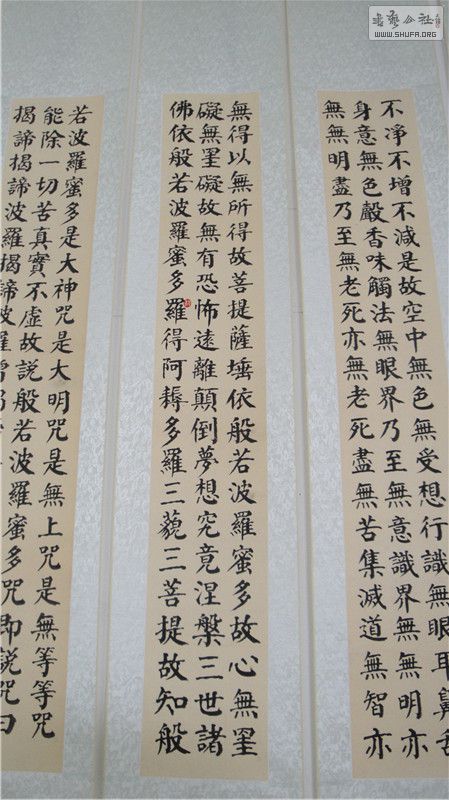 書藝公社
WWW.SHUFA.ORG
不凈不增不減是故空中無色無受想行識無眼耳鼻舌
身意無色聲香味觸法無眼界乃至無意識界無無明亦
無無明盡乃至無老死亦無老死盡無苦集滅道無智亦
無得以無所得故菩提薩埵依般若波羅蜜多故心無罣
礙無罣礙故無有恐怖遠離顛倒夢想究竟涅槃三世諸
佛依般若波羅蜜多羅得阿耨多羅三藐三菩提故知般
若波羅蜜多是大神咒是大明咒是無上咒是無等等咒
能除一切苦真實不虛故説般若波羅蜜多咒即説咒曰
揭諦揭諦波羅揭諦波羅